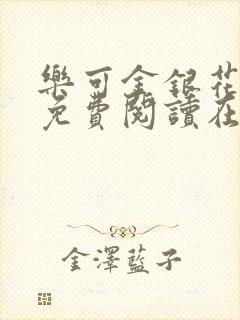 樂可金銀花
免費閱讀在
金澤藍子